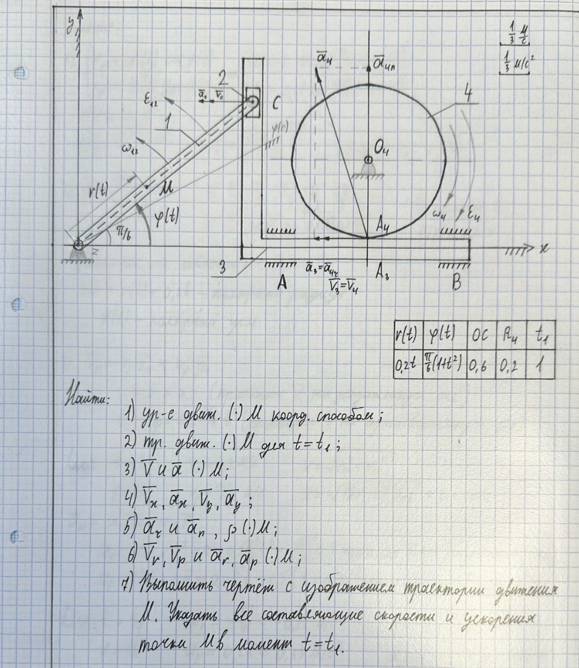 y
1/3 м/с
1/3 м/с²
ā₄ ā₄ₙ
2
ε₁₂ ā₂ V̄₂ C 4
1
φ(t)
ω₁₂ O₄
r(t) M
φ(t) ω₄ ε₄
π/6 A₄
x
3 A ā₃=ā₄τ A₃ B
V̄₃=V̄₄
r(t) φ(t) OC R₄ t₁
0,2t π/6(1+t²) 0,6 0,2 1
Найти:
1) ур-е движ. (·) M коорд. способом;
2) тр. движ. (·) M для t=t₁;
3) V̄ и ā (·) M;
4) V̄ₓ, āₓ, V̄ᵧ, āᵧ;
5) āτ и āₙ, ρ (·) M;
6) V̄r, V̄p и ār, āp (·) M;
7) Выполнить чертёж с изображением траектории движения
M. Указать все составляющие скорости и ускорения
точки M в момент t=t₁.